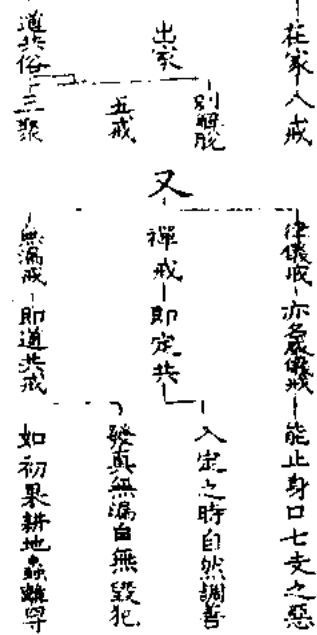 在家 八戒
出家
別解脫
五戒
道共俗 三聚
又
律儀戒 亦名威儀戒 能止身口七支之惡
禪戒 即定共
入定之時自然調善
發真無漏自無毀犯
無漏戒 即道共戒
如初果耕地蟲離